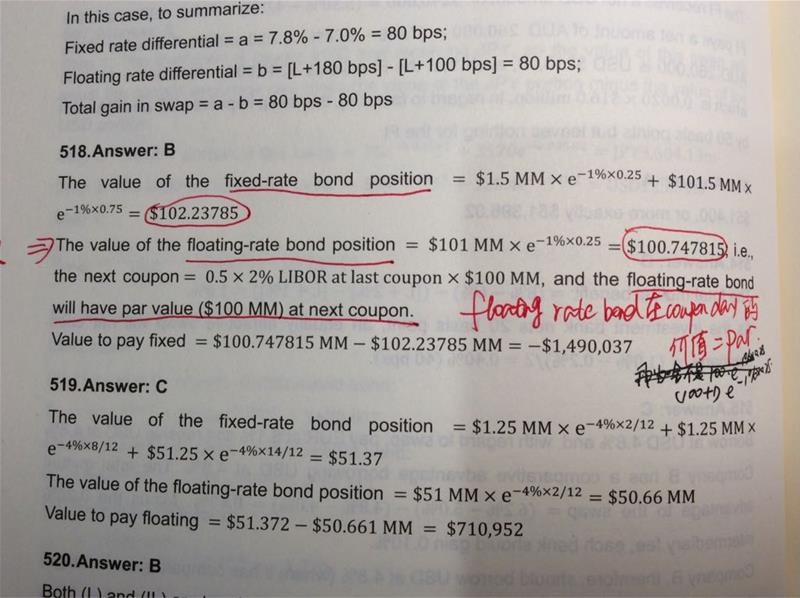 In this case, to summarize:
Fixed rate differential = a = 7.8% - 7.0% = 80 bps;
Floating rate differential = b = [L+180 bps] - [L+100 bps] = 80 bps;
Total gain in swap = a - b = 80 bps - 80 bps
518.Answer: B
The value of the fixed-rate bond position = $1.5 MM × e^{−1%×0.25} + $101.5 MM ×
e^{−1%×0.75} = $102.23785
⇒ The value of the floating-rate bond position = $101 MM × e^{−1%×0.25} = $100.747815, i.e.,
the next coupon = 0.5 × 2% LIBOR at last coupon × $100 MM, and the floating-rate bond
will have par value ($100 MM) at next coupon.
floating rate bond 在 coupon day 的
价值 = par.
(100+1) e
Value to pay fixed = $100.747815 MM − $102.23785 MM = −$1,490,037
519.Answer: C
The value of the fixed-rate bond position = $1.25 MM × e^{−4%×2/12} + $1.25 MM ×
e^{−4%×8/12} + $51.25 × e^{−4%×14/12} = $51.37
The value of the floating-rate bond position = $51 MM × e^{−4%×2/12} = $50.66 MM
Value to pay floating = $51.372 − $50.661 MM = $710,952
520.Answer: B
Both (I.) and (II.)